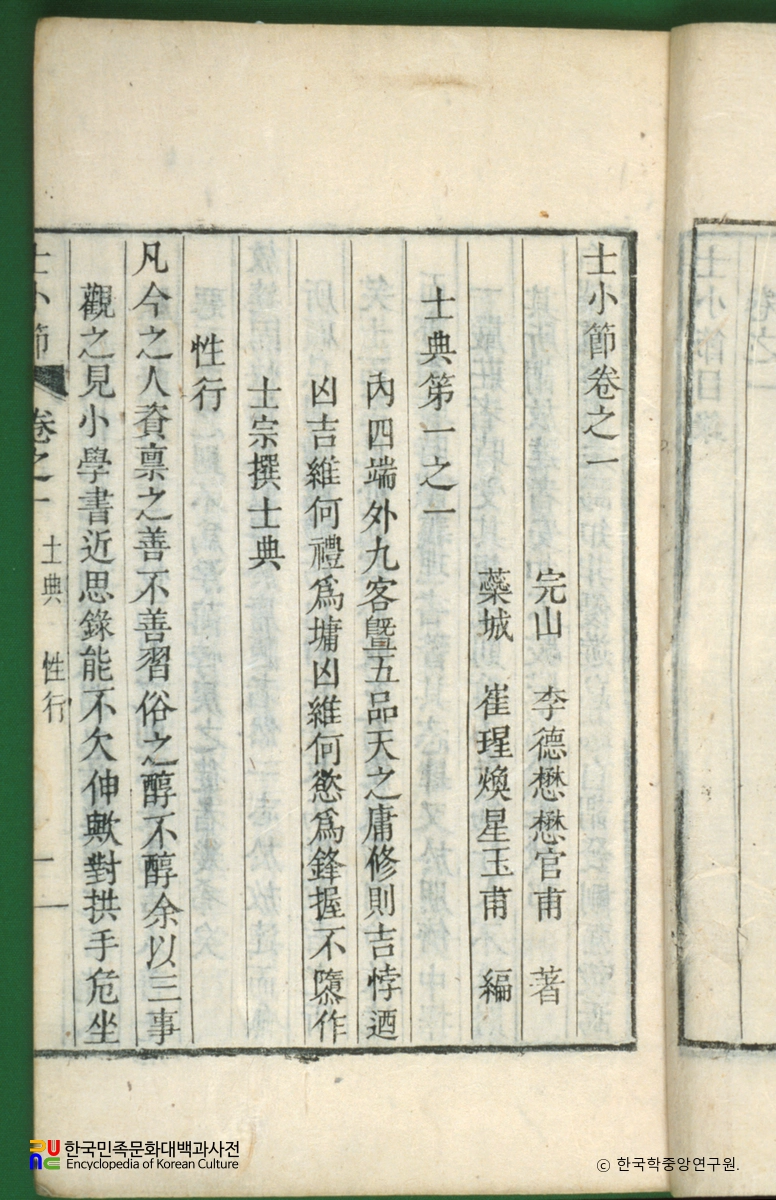 士小節卷之一
完山 李德懋懋官甫 著
蘂城 崔瑆煥星玉甫 編
士典第一之一
內四端外九容曁五品天之庸修則吉悖迺
凶吉維何禮爲墉凶維何慾爲鋒握不隳作
士宗撰士典
性行
凡今之人資禀之善不善習俗之醇不醇余以三事
觀之見小學書近思錄能不欠伸歟對拱手危坐
士小節 卷之一 士典 性行 一
士小節目錄
卷之一
한국민족문화대백과사전
Encyclopedia of Korean Culture
ⓒ 한국학중앙연구원.